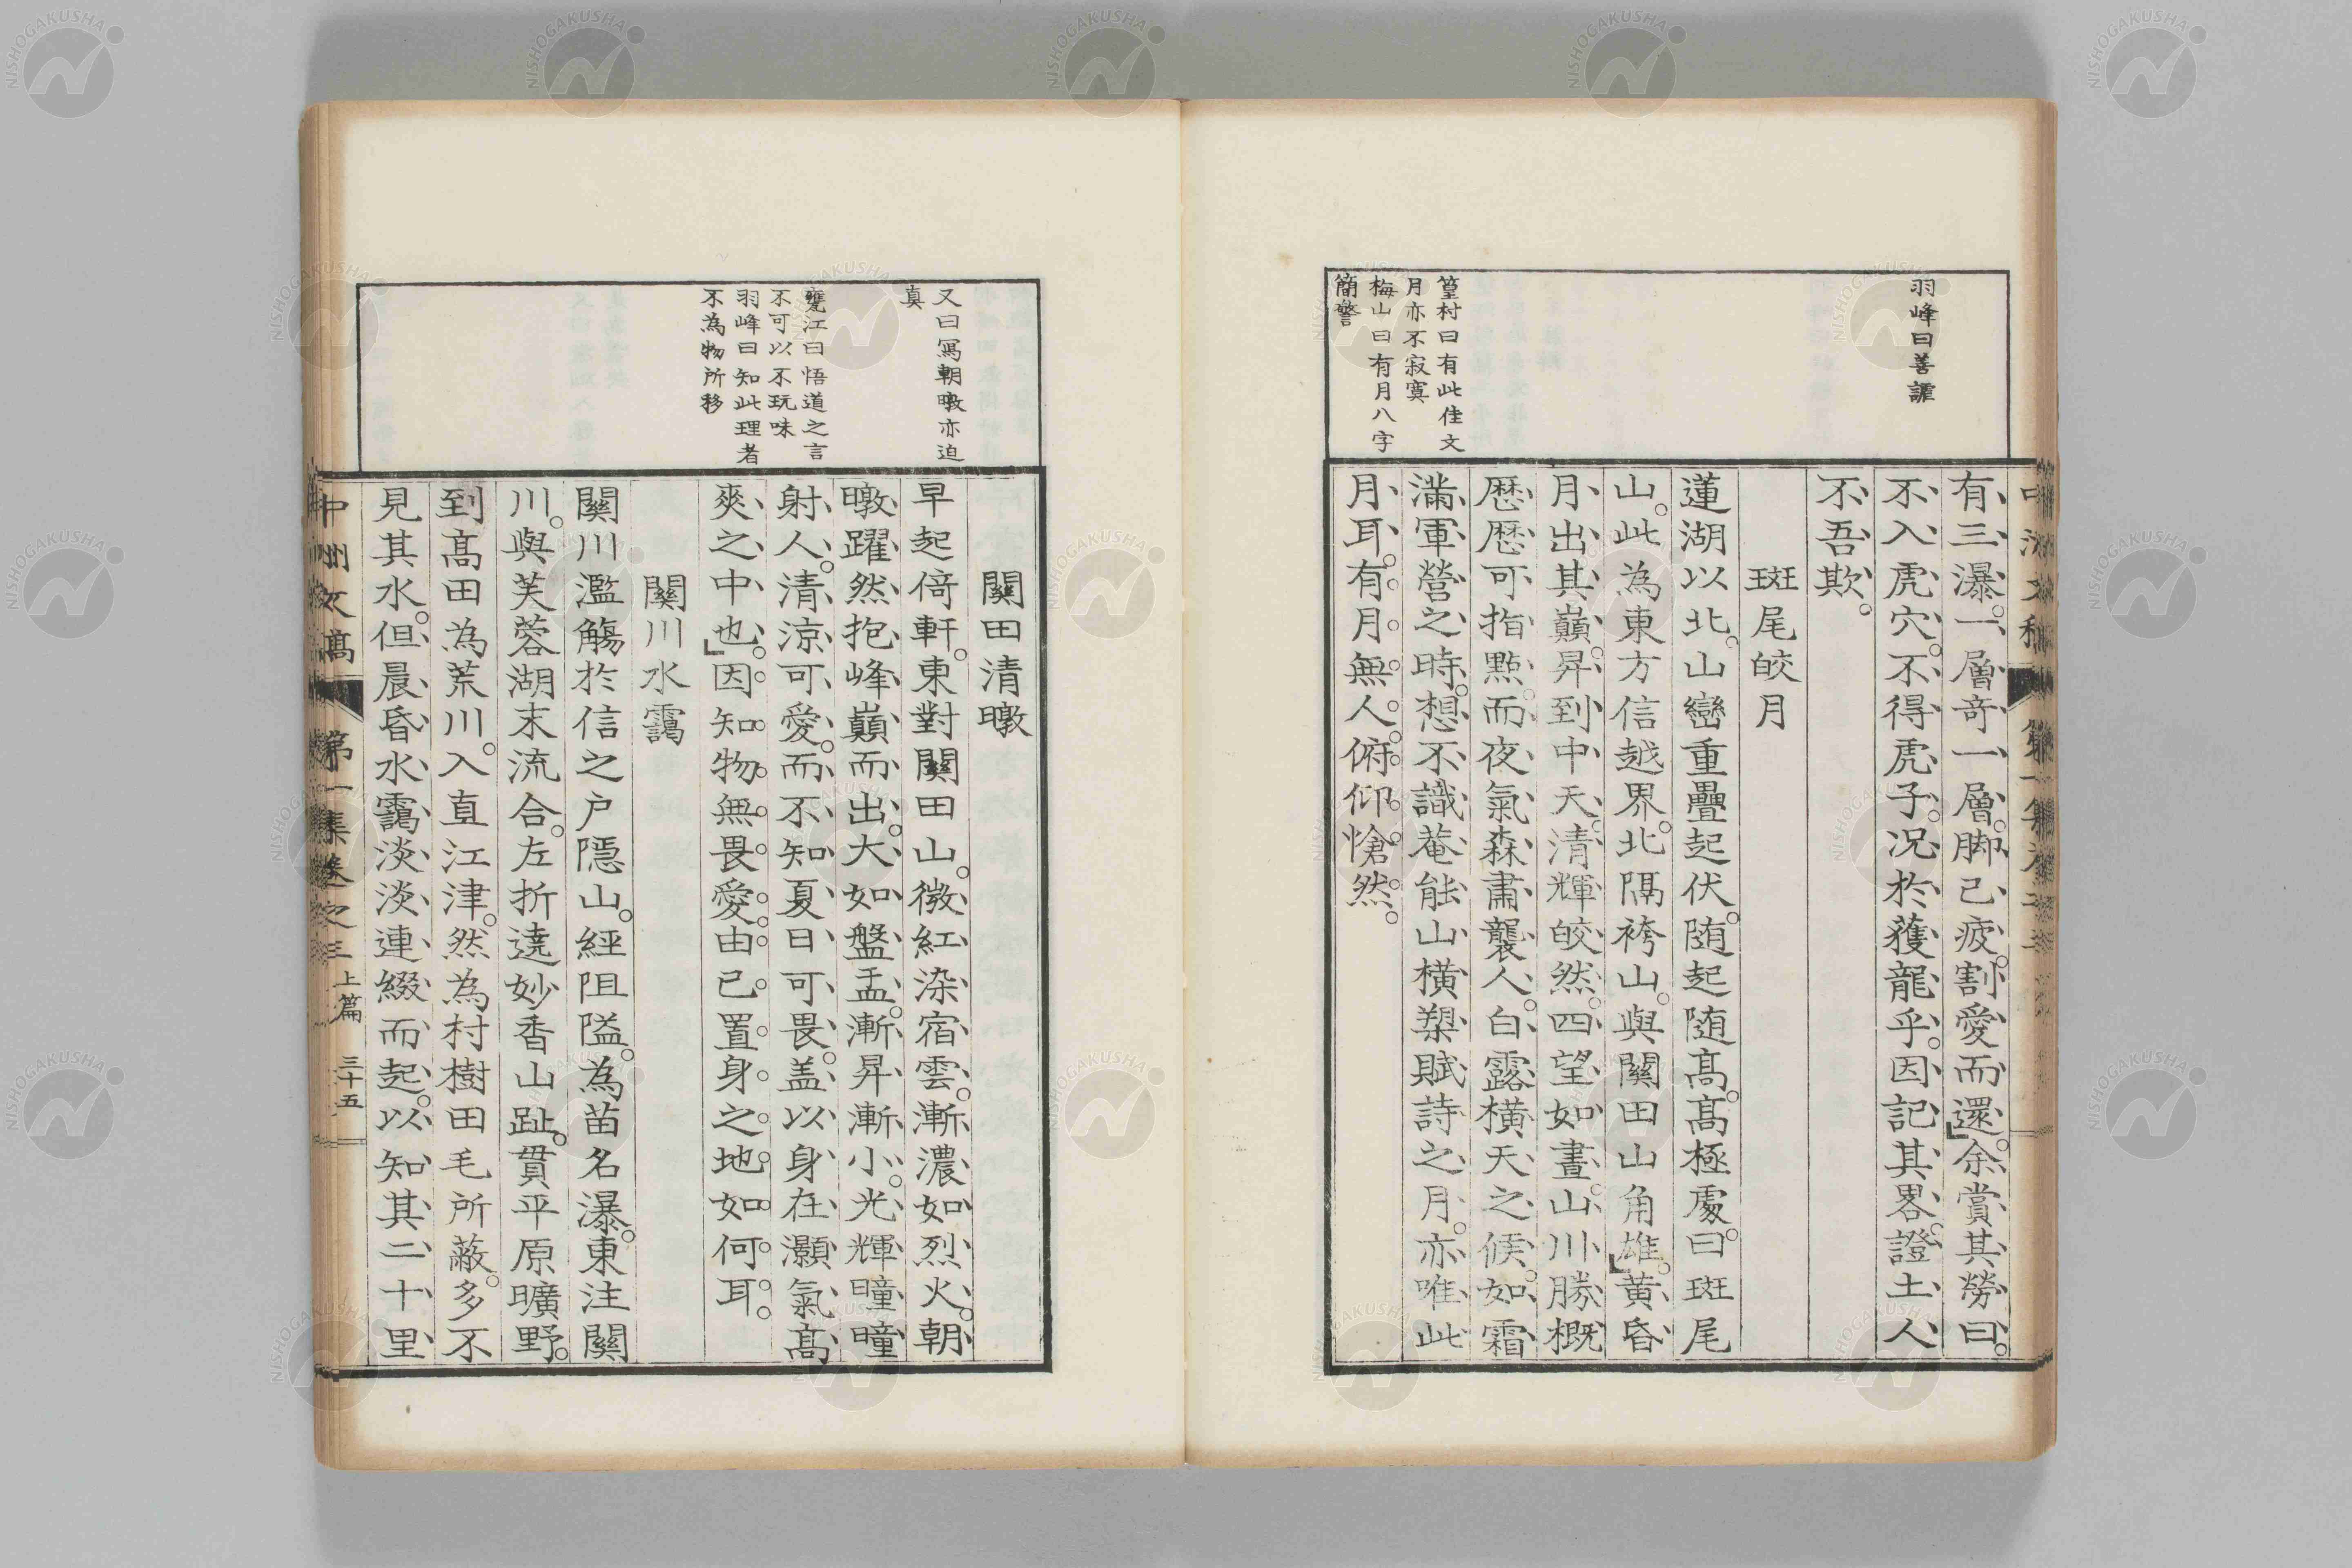 羽峰曰善謔
篁村曰有此佳文
月亦不寂寞
梅山曰有月八字
簡警
有三瀑。一層奇一層。脚已疲。割愛而還。余賞其勞曰。
不入虎穴。不得虎子。况於獲龍乎。因記其畧。證土人
不吾欺。
斑尾皎月
蓮湖以北。山巒重疊起伏。随起随髙。髙極處。曰斑尾
山。此為東方信越界。北隔袴山。與關田山角雄。黄昏
月出其巔。昇到中天。清輝皎然。四望如晝。山川勝概
歴歴可指點。而夜氣森肅襲人。白露橫天之候。如霜
滿軍營之時。想不識菴能山橫槊賦詩之月。亦唯此
月耳。有月無人。俯仰愴然。
又曰寫朝暾亦迫
真
甕江曰悟道之言
不可以不玩味
羽峰曰知此理者
不為物所移
關田清暾
早起倚軒。東對關田山。微紅染宿雲。漸濃如烈火。朝
暾躍然抱峰巔而出。大如盤盂。漸昇漸小。光輝曈曈
射人。清涼可愛。而不知夏日可畏。盖以身在灝氣髙
爽之中也。因知物無畏愛。由己置身之地如何耳。
關川水靄
關川濫觴於信之户隱山。經阻隘。為苗名瀑。東注關
川。與芙蓉湖末流合。左折遶妙香山趾。貫平原曠野。
到髙田為荒川。入直江津。然為村樹田毛所蔽。多不
見其水。但晨昏水靄淡淡連綴而起。以知其二十里
中洲文髙 第一集卷之三 上篇 三十五